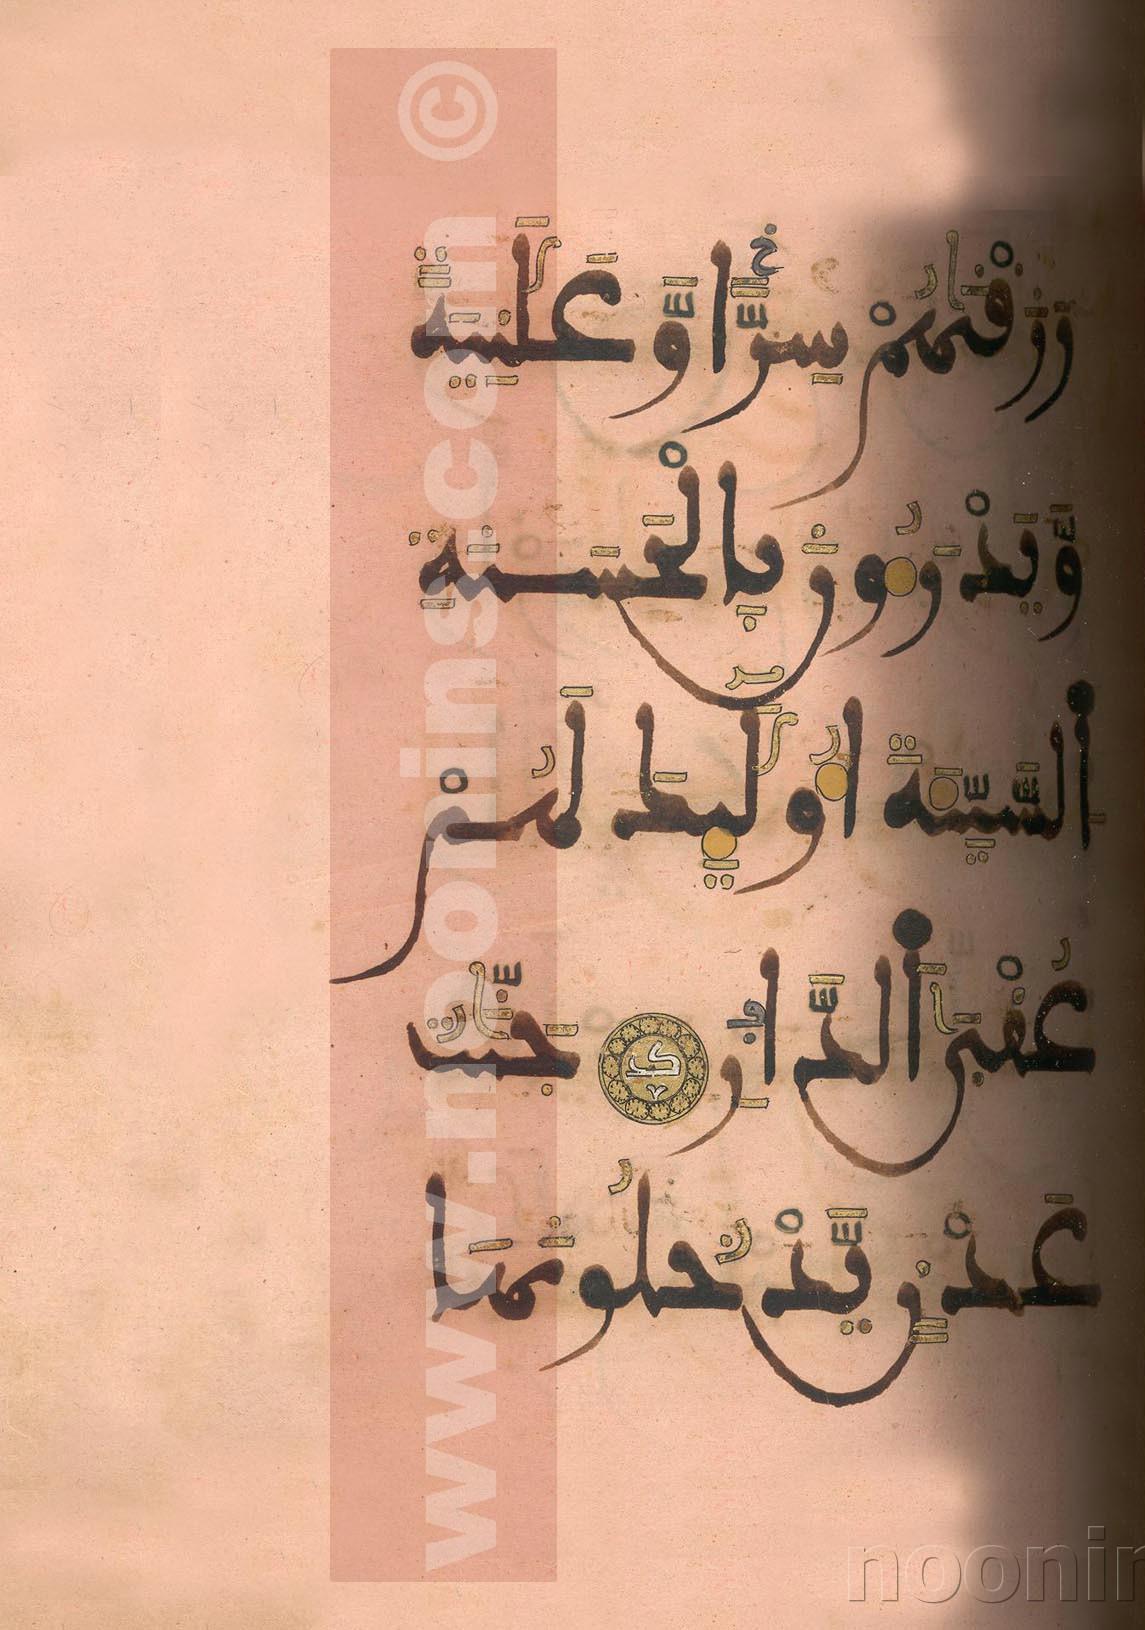 رَزَقْنَٰهُمْ سِرّٗا وَّعَلَٰنِيَةٗ
وَّيَدْرَءُونَ بِالْحَسَنَةِ
اِ۬لسَّيِّئَةَ أُوْلَٰٓئِكَ لَهُمْ
عُقْبَى اَ۬لدّ۪ارِ جَنَّٰتُ
عَدْنٖ يَّدْخُلُونَهَا
www.noonins.com ©
noonin